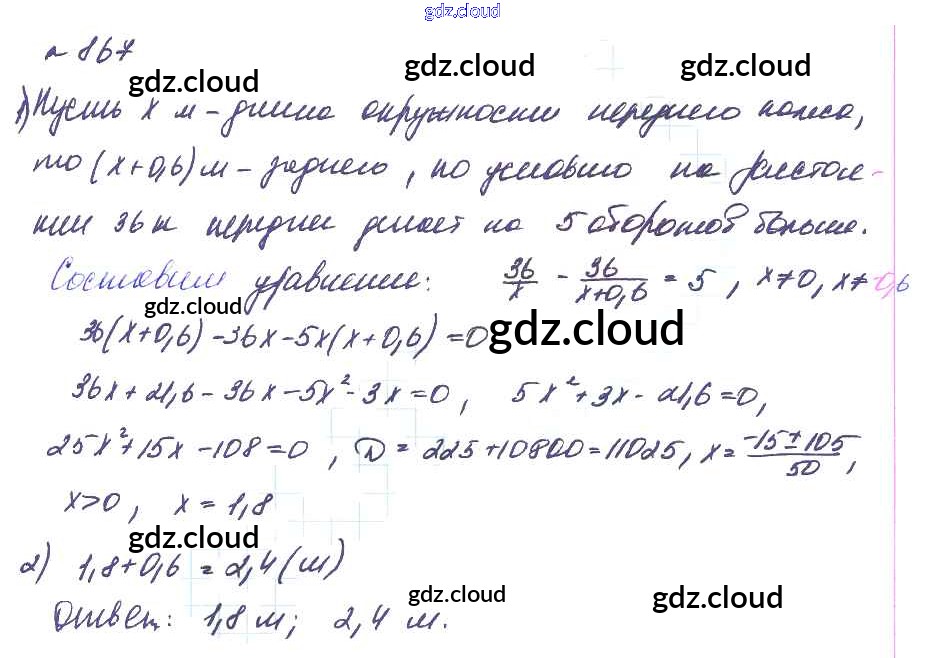 gdz.cloud
№ 867
gdz.cloud gdz.cloud gdz.cloud
1) Пусть x м - длина окружности переднего колеса,
то (x+0,6) м - заднего, по условию на расстоя-
нии 36 м переднее делает на 5 оборотов больше.
Составим уравнение: 36/x - 36/(x+0,6) = 5, x≠0, x≠-0,6
gdz.cloud gdz.cloud
36(x+0,6)-36x-5x(x+0,6)=0
36x+21,6-36x-5x²-3x=0, 5x²+3x-21,6=0,
25x²+15x-108=0, D=225+10800=11025, x=(-15±105)/50,
x>0, x=1,8
gdz.cloud
2) 1,8+0,6=2,4(м)
gdz.cloud gdz.cloud
Ответ: 1,8 м; 2,4 м.